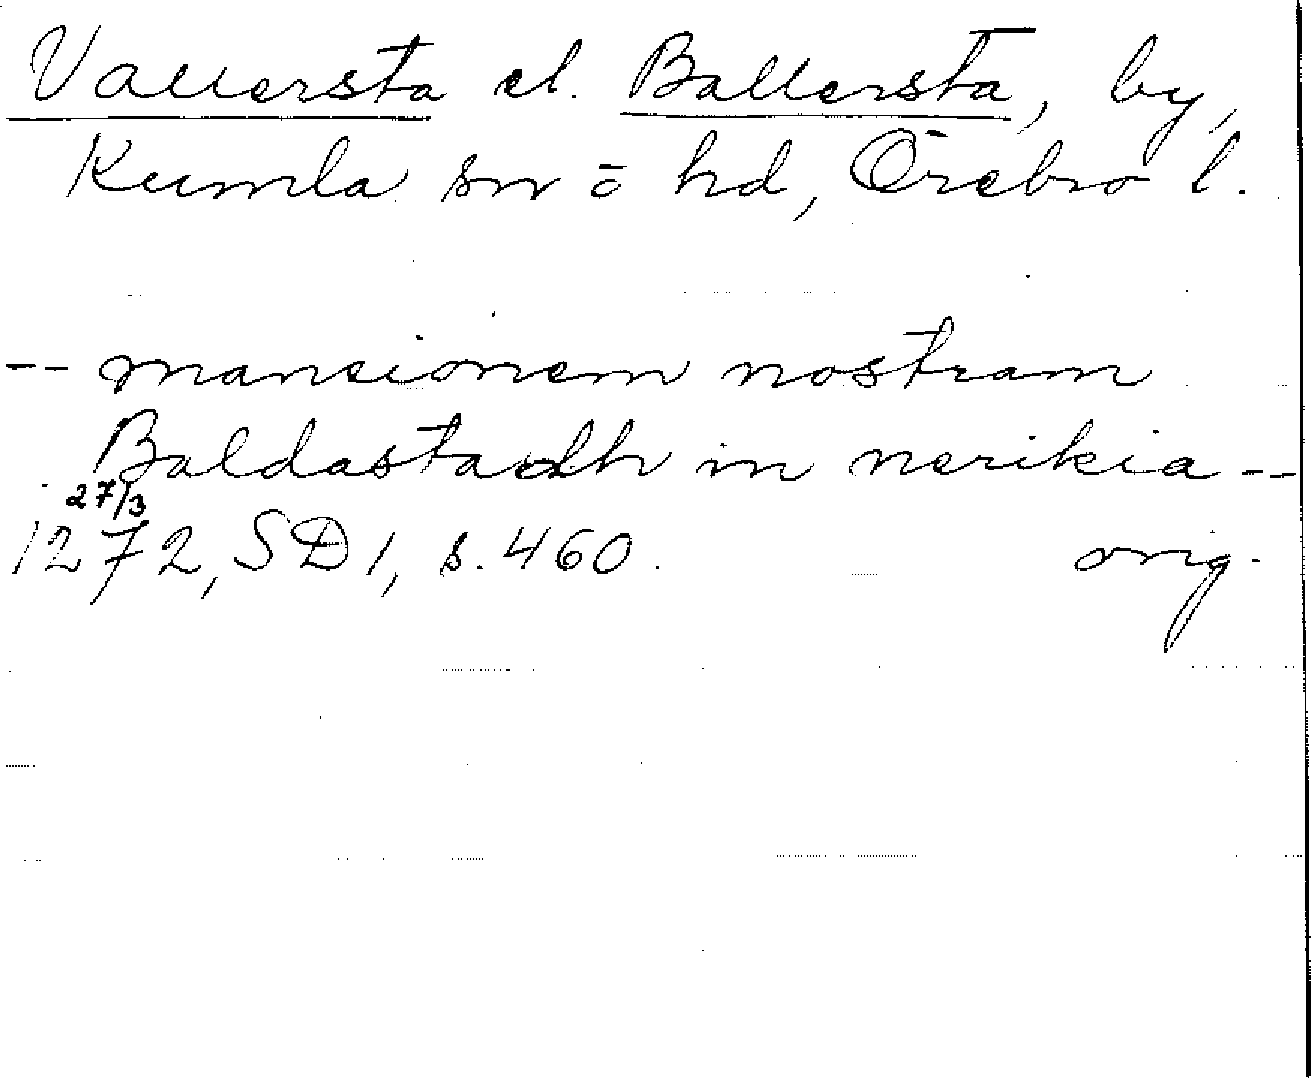 Vallersta el. Ballersta, by,
Kumla sn o hd, Örebro l.
-- mansionem nostram
Baldastadh in nerikia --
27/3
1272, SD 1, s. 460. orig.